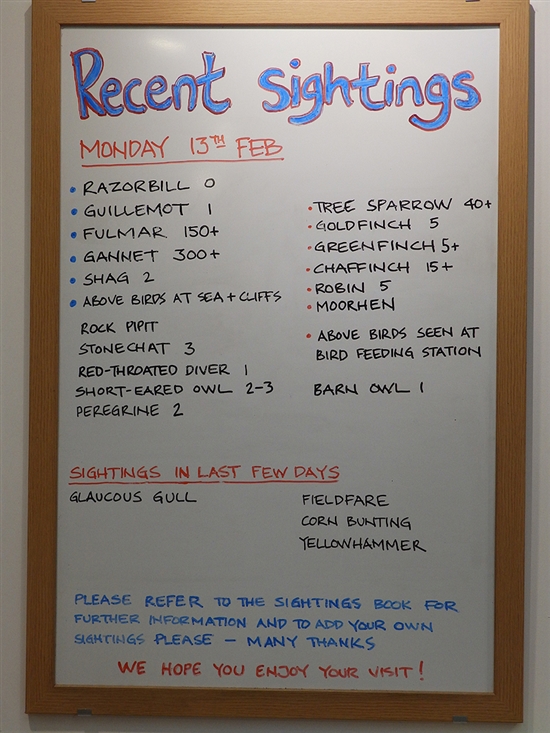 Recent Sightings
MONDAY 13TH FEB
• RAZORBILL 0
• GUILLEMOT 1
• FULMAR 150+
• GANNET 300+
• SHAG 2
• ABOVE BIRDS AT SEA + CLIFFS
ROCK PIPIT
STONECHAT 3
RED-THROATED DIVER 1
SHORT-EARED OWL 2-3
PEREGRINE 2
• TREE SPARROW 40+
• GOLDFINCH 5
• GREENFINCH 5+
• CHAFFINCH 15+
• ROBIN 5
• MOORHEN
• ABOVE BIRDS SEEN AT
BIRD FEEDING STATION
BARN OWL 1
SIGHTINGS IN LAST FEW DAYS
GLAUCOUS GULL
FIELDFARE
CORN BUNTING
YELLOWHAMMER
PLEASE REFER TO THE SIGHTINGS BOOK FOR
FURTHER INFORMATION AND TO ADD YOUR OWN
SIGHTINGS PLEASE - MANY THANKS
WE HOPE YOU ENJOY YOUR VISIT!